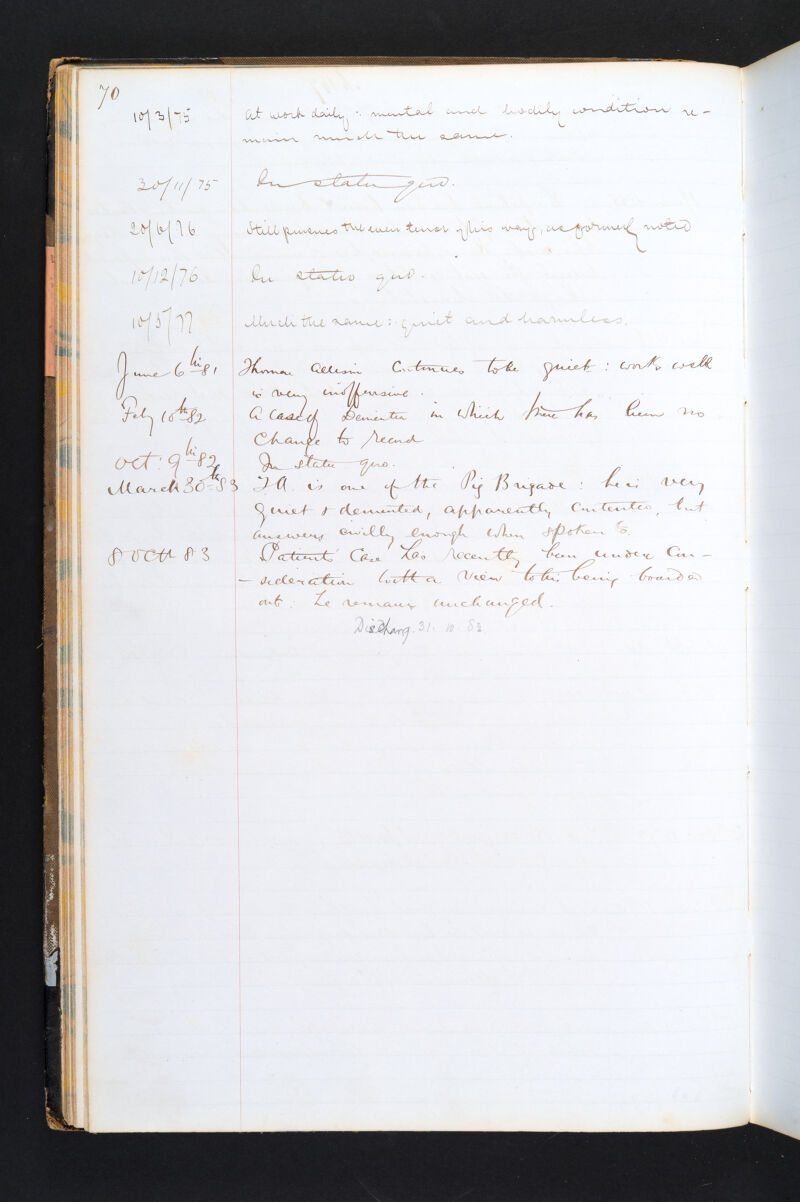 70
10/3/75 At work daily: mental and bodily condition re-
main much the same.
30/11/75 In statu quo.
20/6/76 Still pursues the even tenor of his way, as formerly noted
10/12/76 In statu quo.
10/5/77 Much the same: quiet and harmless.
June 6th 81 Thomas Allison Continues to be quiet: works well
is very inoffensive.
Feby 10th 82 A case of Dementia in which there has been no
Change to record
Oct: 9th 82 In statu quo.
March 30th 83 T.A. is one of the Pig Brigade: he is very
quiet & demented, apparently contented, but
answers civilly enough when spoken to.
8 Oct 83 Patients' Case has recently been under Con-
-sideration with a view to his being boarded
out: he remains unchanged.
Discharg. 31. 10. 83